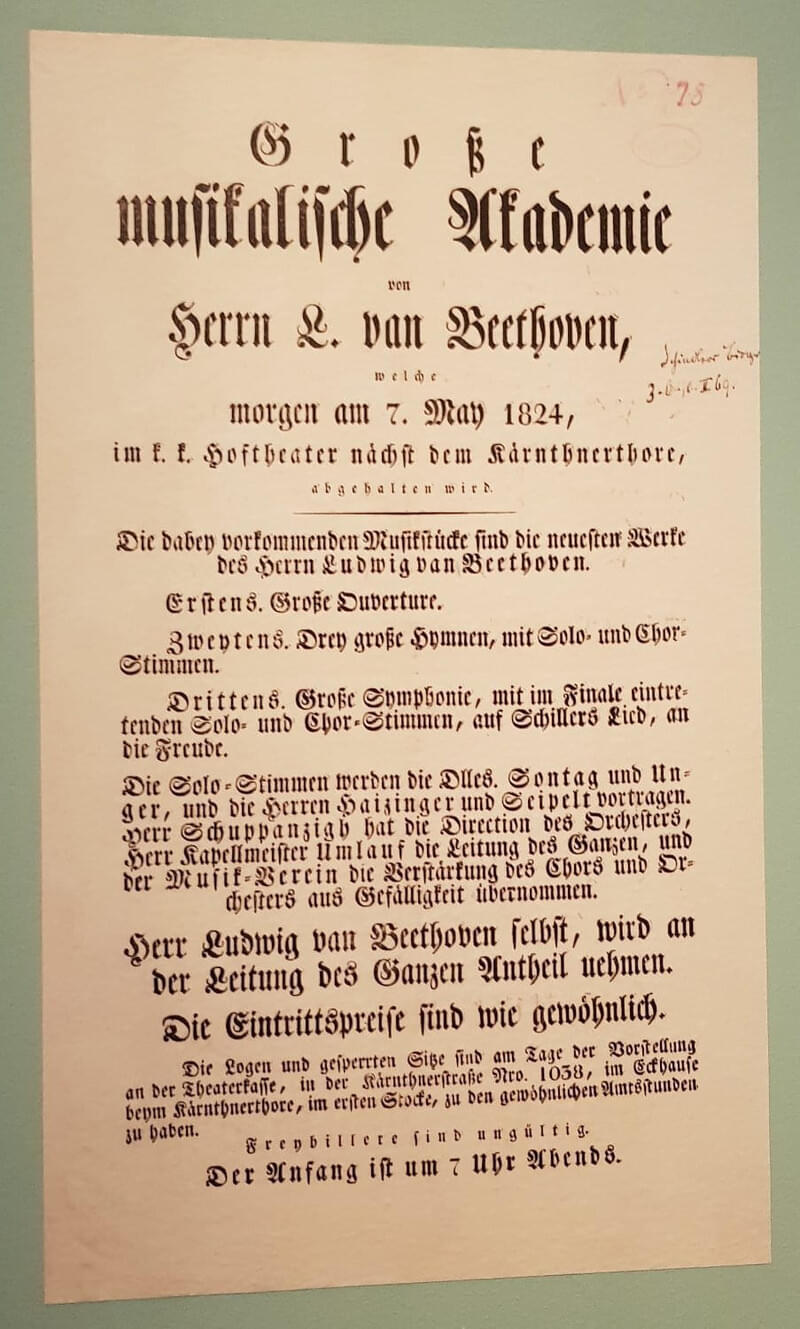 75
Große
musikalische Akademie
von
Herrn L. van Beethoven,
welche
morgen am 7. May 1824,
im k. k. Hoftheater nächst dem Kärnthnerthore,
abgehalten wird.
Die dabey vorkommenden Musikstücke sind die neuesten Werke
des Herrn Ludwig van Beethoven.
Erstens. Große Ouverture.
Zweytens. Drey große Hymnen, mit Solo- und Chor-
Stimmen.
Drittens. Große Symphonie, mit im Finale eintre-
tenden Solo- und Chor-Stimmen, auf Schillers Lied, an
die Freude.
Die Solo-Stimmen werden die Dlles. Sontag und Un-
ger, und die Herren Haizinger und Seipelt vortragen.
Herr Schuppanzigh hat die Direction des Orchesters,
Herr Kapellmeister Umlauf die Leitung des Ganzen, und
der Musik-Verein die Verstärkung des Chors und Or-
chesters aus Gefälligkeit übernommen.
Herr Ludwig van Beethoven selbst, wird an
der Leitung des Ganzen Antheil nehmen.
Die Eintrittspreise sind wie gewöhnlich.
Die Logen und gesperrten Sitze sind am Tage der Vorstellung
an der Theaterkasse, in der Kärnthnerstraße Nro. 1038, im Eckhause
beym Kärnthnerthore, im ersten Stocke, zu den gewöhnlichen Amtsstunden
zu haben.
Freybillete sind ungültig.
Der Anfang ist um 7 Uhr Abends.